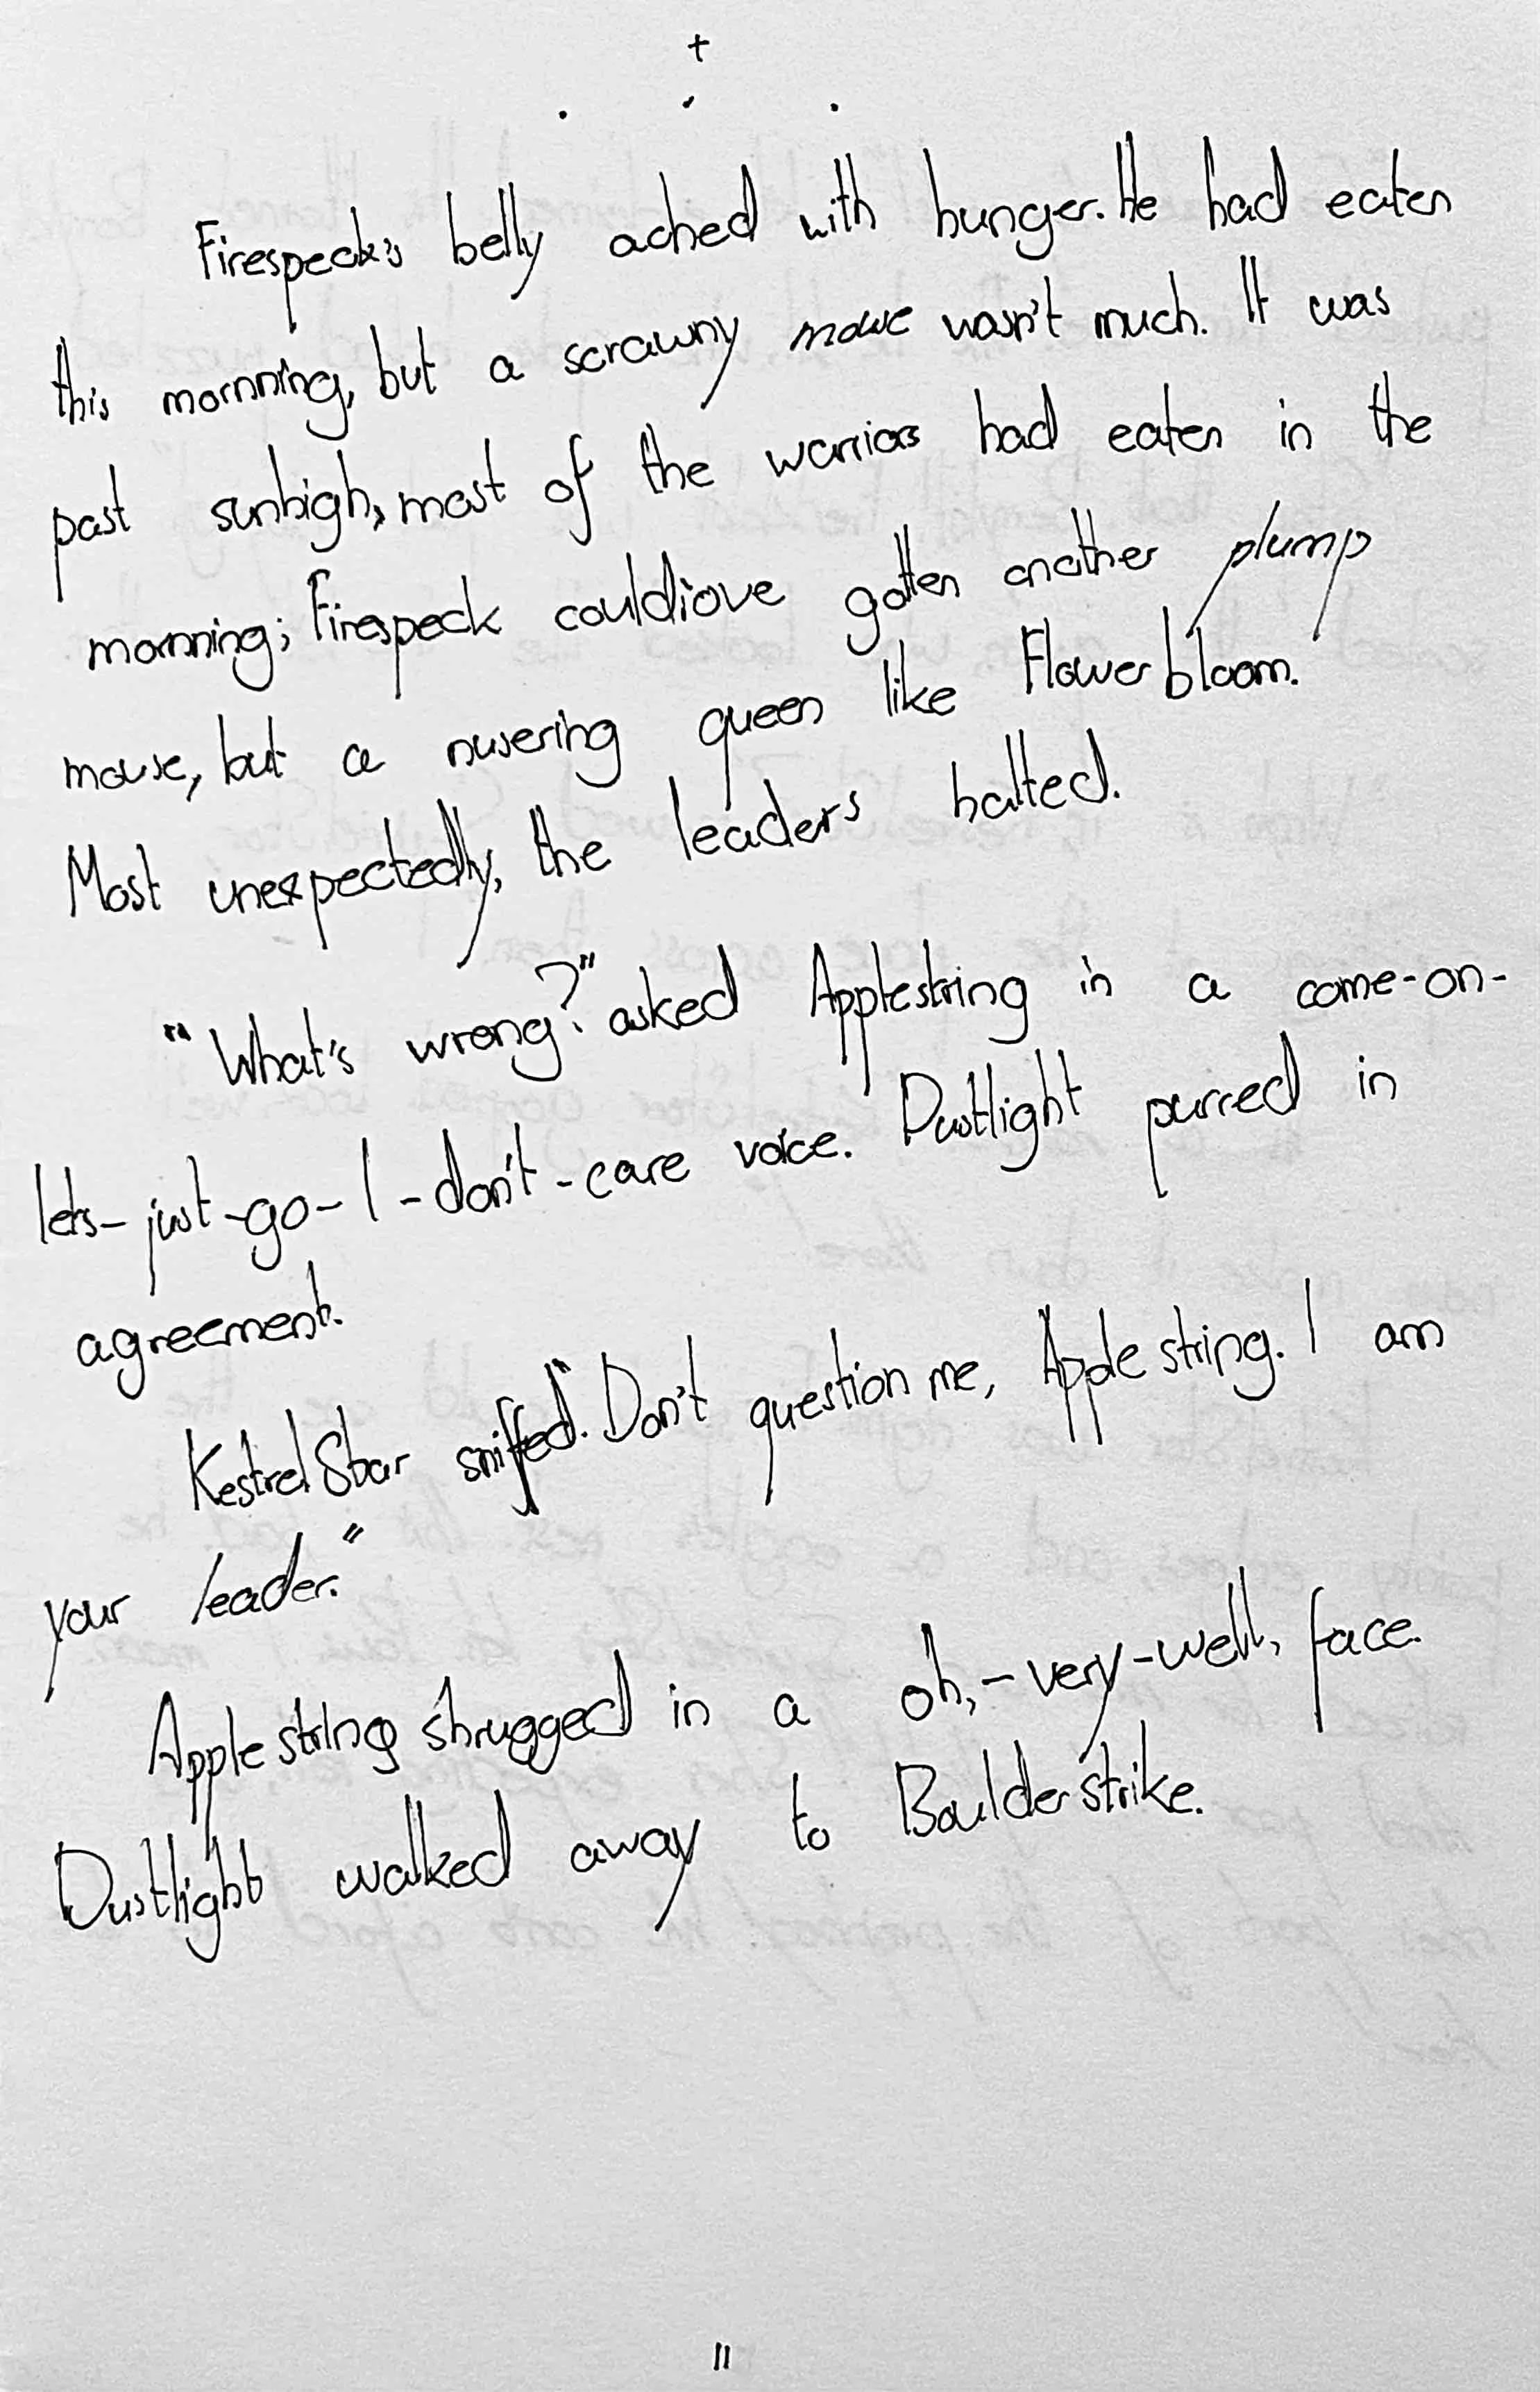 Firespeck's belly ached with hunger. He had eaten
this mornning, but a scrawny mouse wasn't much. It was
past sunhigh, most of the warriors had eaten in the
mornning; Firespeck could'ove gotten another plump
mouse, but a nusering queen like Flowerbloom.
Most unexpectedly, the leaders halted.
"What's wrong?" asked Applestring in a come-on-
lets-just-go-I-don't-care voice. Dustlight purred in
agreement.
KestrelStar sniffed. "Don't question me, Applestring. I am
your leader."
Applestring shrugged in a oh,-very-well, face.
Dustlight walked away to Boulderstrike.
11